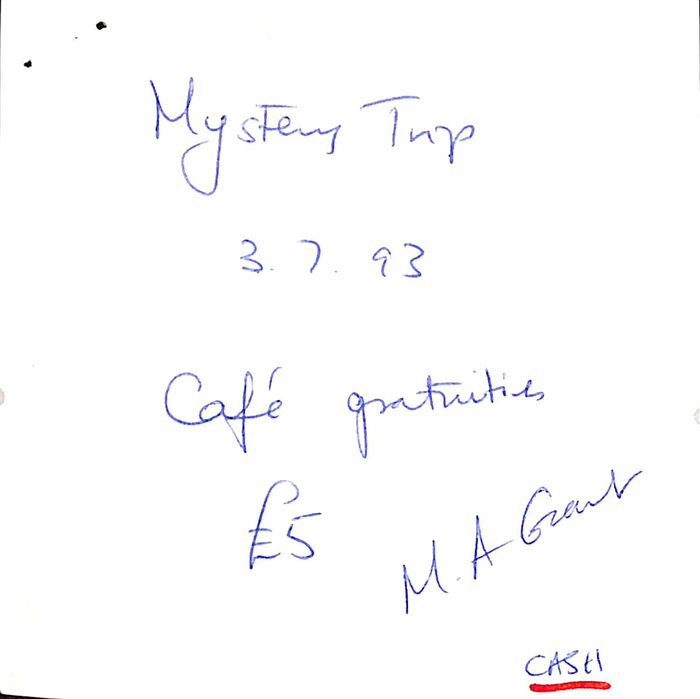 Mystery Trip
3.7.93
Café gratuities
£5
M.A Grant
CASH